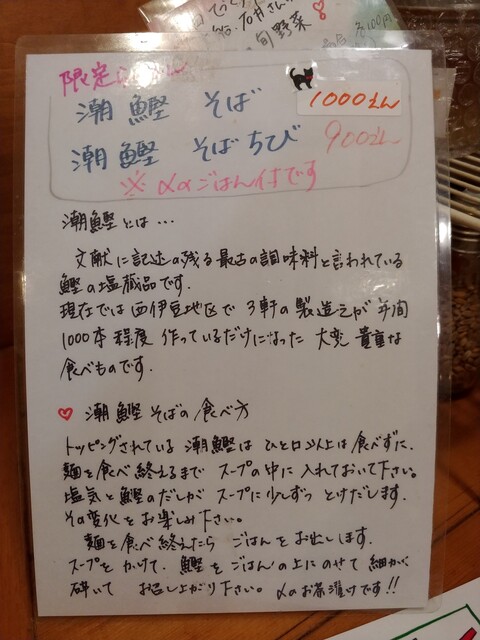 石井さん
旬野菜
100円
限定
潮鰹 そば 1000えん
潮鰹 そばちび 900えん
※ 〆のごはん付です
潮鰹とは…
文献に記述の残る最古の調味料と言われている
鰹の塩蔵品です.
現在では西伊豆地区で3軒の製造元が年間
1000本程度作っているだけになった 大変 貴重な
食べものです.
♡ 潮鰹そばの食べ方
トッピングされている 潮鰹は ひと口以上は食べずに、
麺を食べ終えるまで スープの中に入れておいて下さい。
塩気と鰹のだしが スープに少しずつ とけだします.
その変化をお楽しみ下さい。
麺を食べ終えたら ごはんをお出しします.
スープをかけて、鰹をごはんの上にのせて 細かく
砕いて お召し上がり下さい。〆のお茶漬けです!!